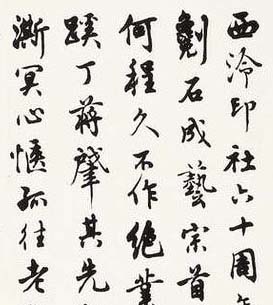 西泠印社六十周年
劖石成藝宗首
何程久不作絶業
蹊丁蔣肇其先
澌冥心愜孤往老